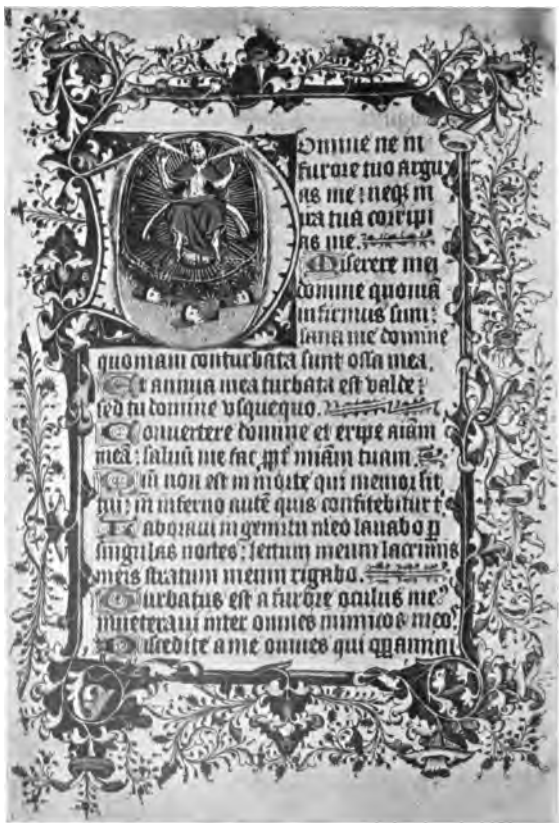 Domine ne in
furore tuo argu
as me : neqz in
ira tua corripi
as me.
Miserere mei
domine quoniā
infirmus sum :
sana me domine
quoniam conturbata sunt ossa mea.
Et anima mea turbata est valde :
sed tu domine vsquequo.
Conuertere domine et eripe aīam
meā : saluū me fac ꝓpť mīam tuam.
Qm̄ non est in morte qui memor sit
tui : in inferno autē quis confitebitur t
Laboraui in gemitu meo lauabo ꝑ
singulas noctes : lectum meum lacrimis
meis stratum meum rigabo.
Turbatus est a furore oculus meꝰ
inueteraui inter omnes inimicos meoˢ.
Discedite a me omnes qui oꝑamini